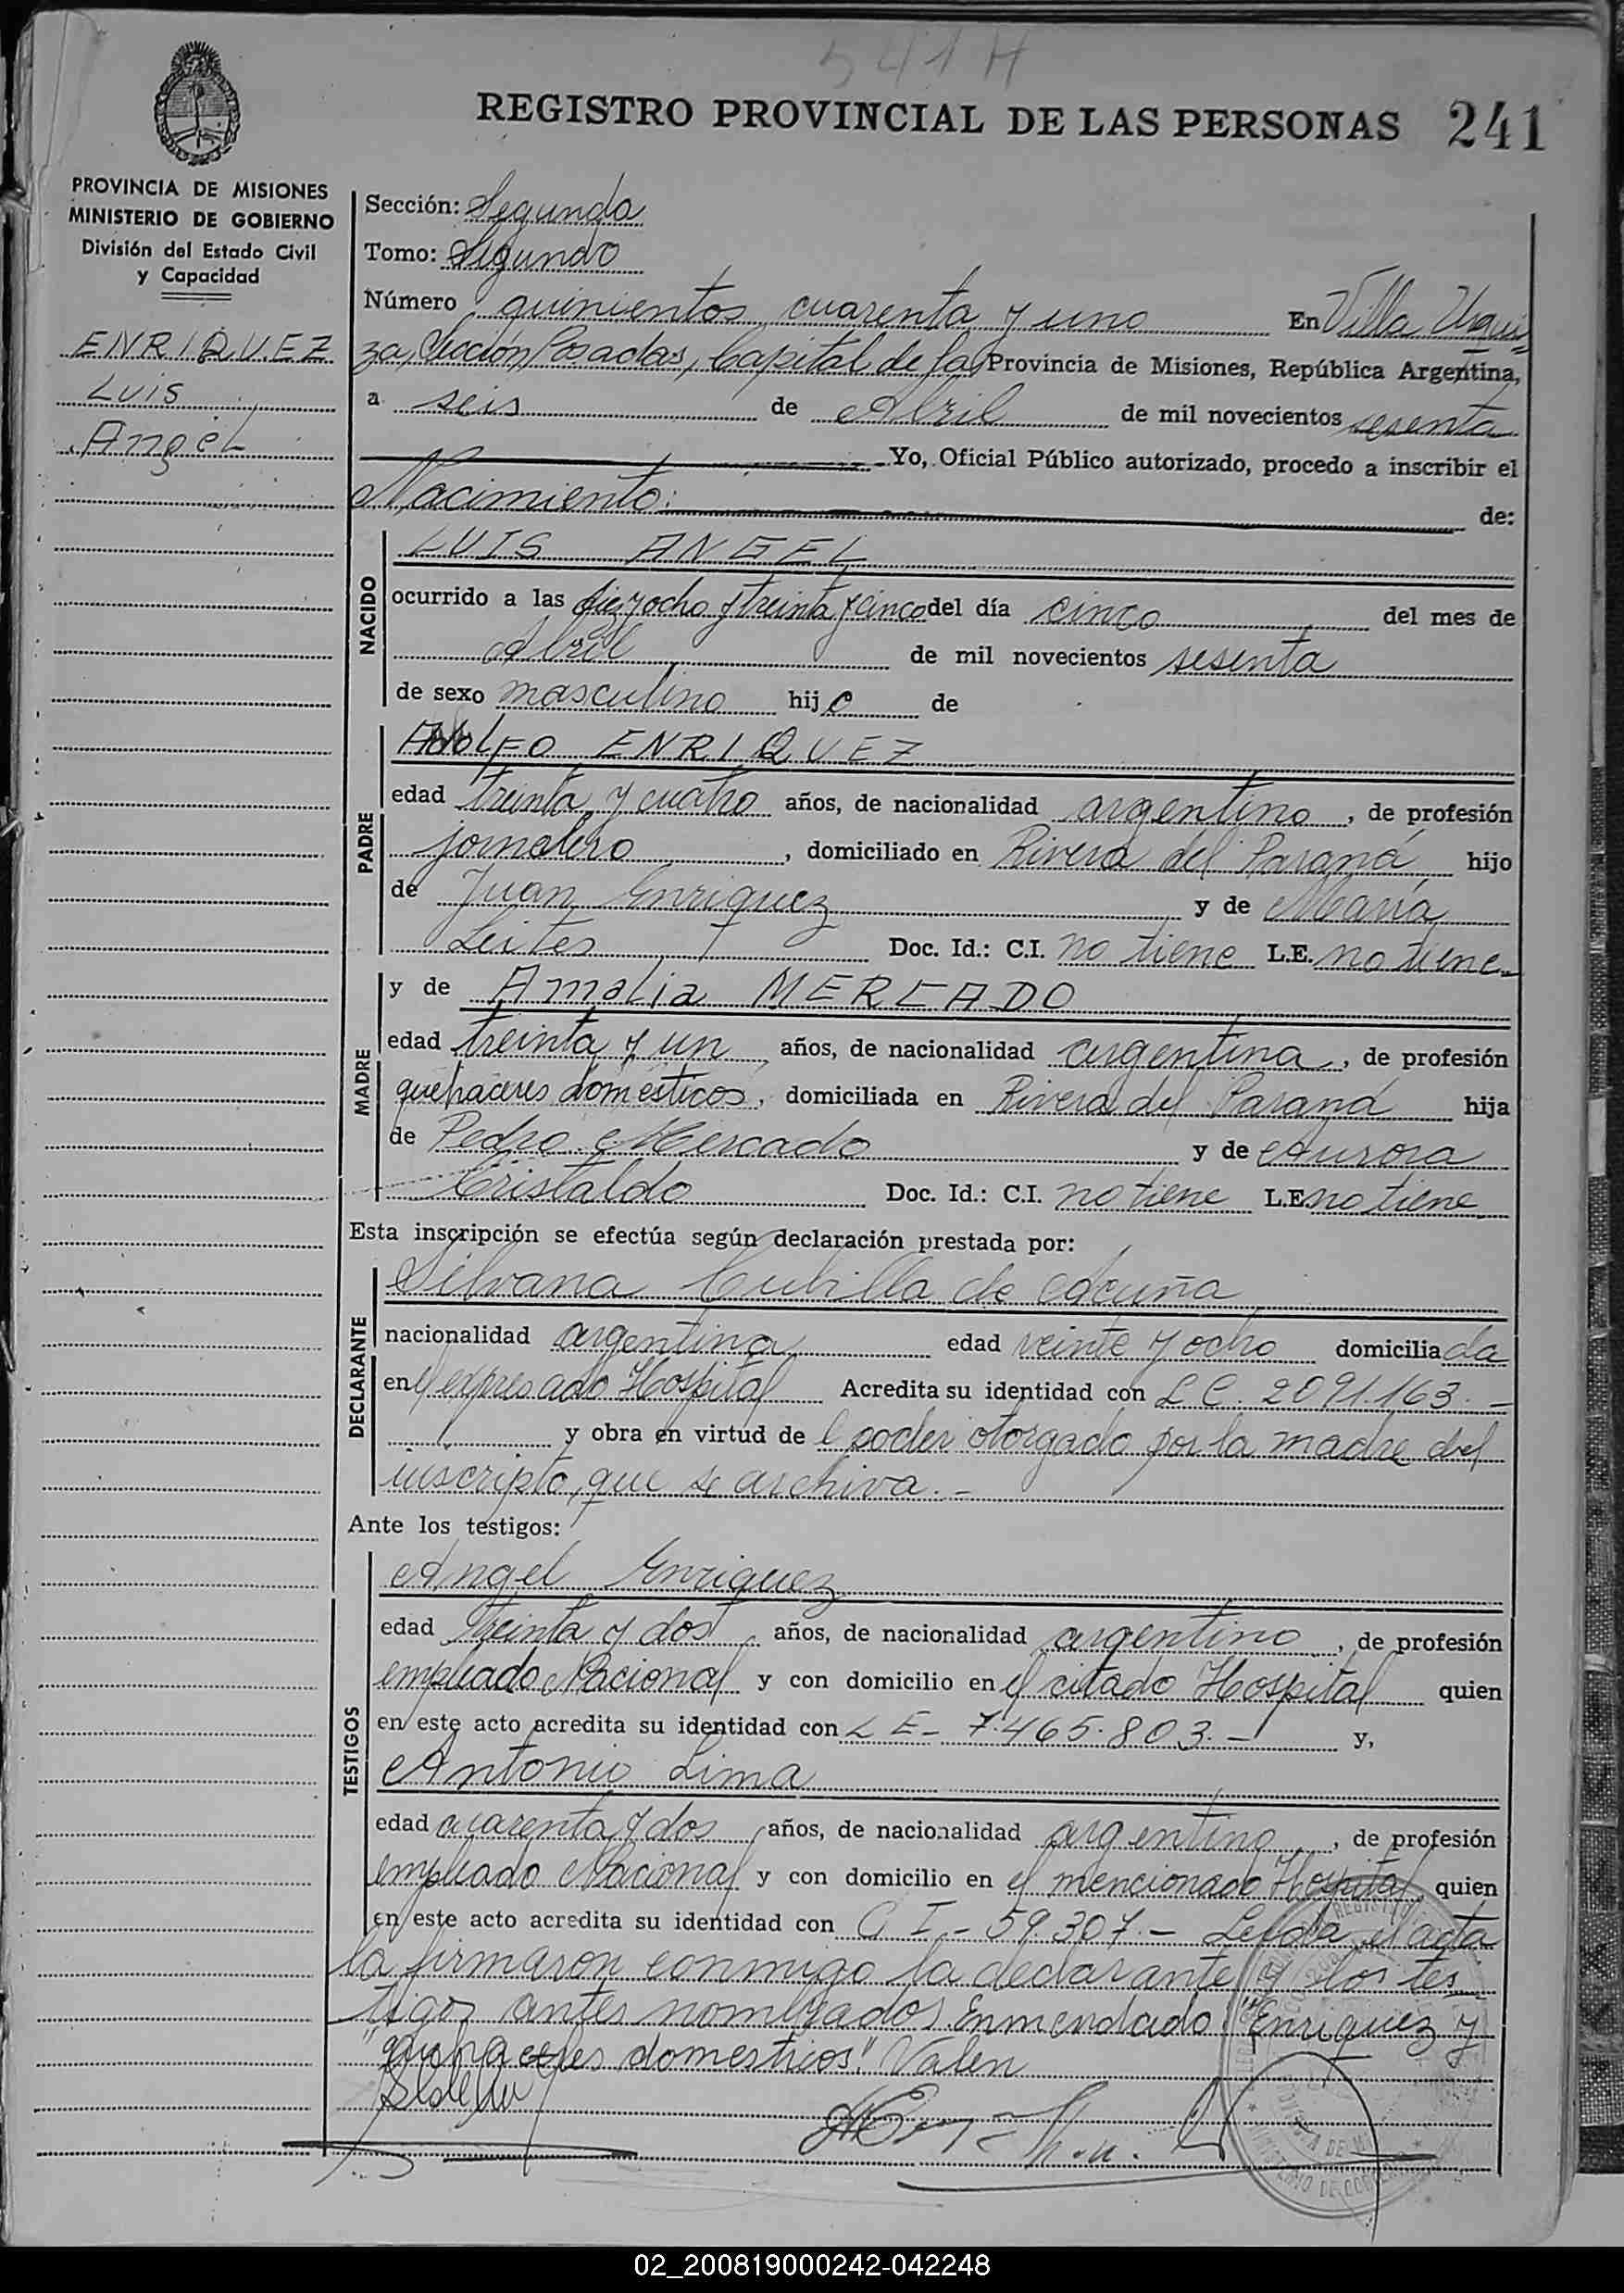 541 H
REGISTRO PROVINCIAL DE LAS PERSONAS 241
PROVINCIA DE MISIONES
MINISTERIO DE GOBIERNO
División del Estado Civil
y Capacidad
ENRIQUEZ
LUIS
Angel
Sección: Segunda
Tomo: Segundo
Número quinientos cuarenta y uno En Villa Urqui
za, Sección Posadas, Capital de la Provincia de Misiones, República Argentina,
a seis de Abril de mil novecientos sesenta
Yo, Oficial Público autorizado, procedo a inscribir el
Nacimiento: de:
NACIDO
LUIS ANGEL
ocurrido a las diez y ocho y treinta y cinco del día cinco del mes de
Abril de mil novecientos sesenta
de sexo masculino hijo de
PADRE
Adolfo ENRIQUEZ
edad treinta y cuatro años, de nacionalidad argentino, de profesión
jornalero, domiciliado en Rivera del Paraná hijo
de Juan Enriquez y de María
Leites Doc. Id.: C.I. no tiene L.E. no tiene
MADRE
y de Amalia MERCADO
edad treinta y un años, de nacionalidad argentina, de profesión
quehaceres domésticos, domiciliada en Rivera del Paraná hija
de Pedro Mercado y de Aurora
Cristaldo Doc. Id.: C.I. no tiene L.E. no tiene
Esta inscripción se efectúa según declaración prestada por:
DECLARANTE
Silvana Cubilla de Acuña
nacionalidad argentina edad veinte y ocho domiciliada
en el expresado Hospital Acredita su identidad con L C. 2091.163.-
y obra en virtud del poder otorgado por la madre del
inscripto, que se archiva.-
Ante los testigos:
TESTIGOS
Angel Enriquez
edad treinta y dos años, de nacionalidad argentino, de profesión
empleado Nacional y con domicilio en el citado Hospital quien
en este acto acredita su identidad con L E- 7.465.803.- y,
Antonio Lima
edad cuarenta y dos años, de nacionalidad argentino, de profesión
empleado Nacional y con domicilio en el mencionado Hospital, quien
en este acto acredita su identidad con C I- 59.307.- Leída el acta
la firmaron conmigo la declarante y los tes
tigos antes nombrados. Enmendado: "Enriquez y
"quehaceres domesticos". Valen
02_200819000242-042248